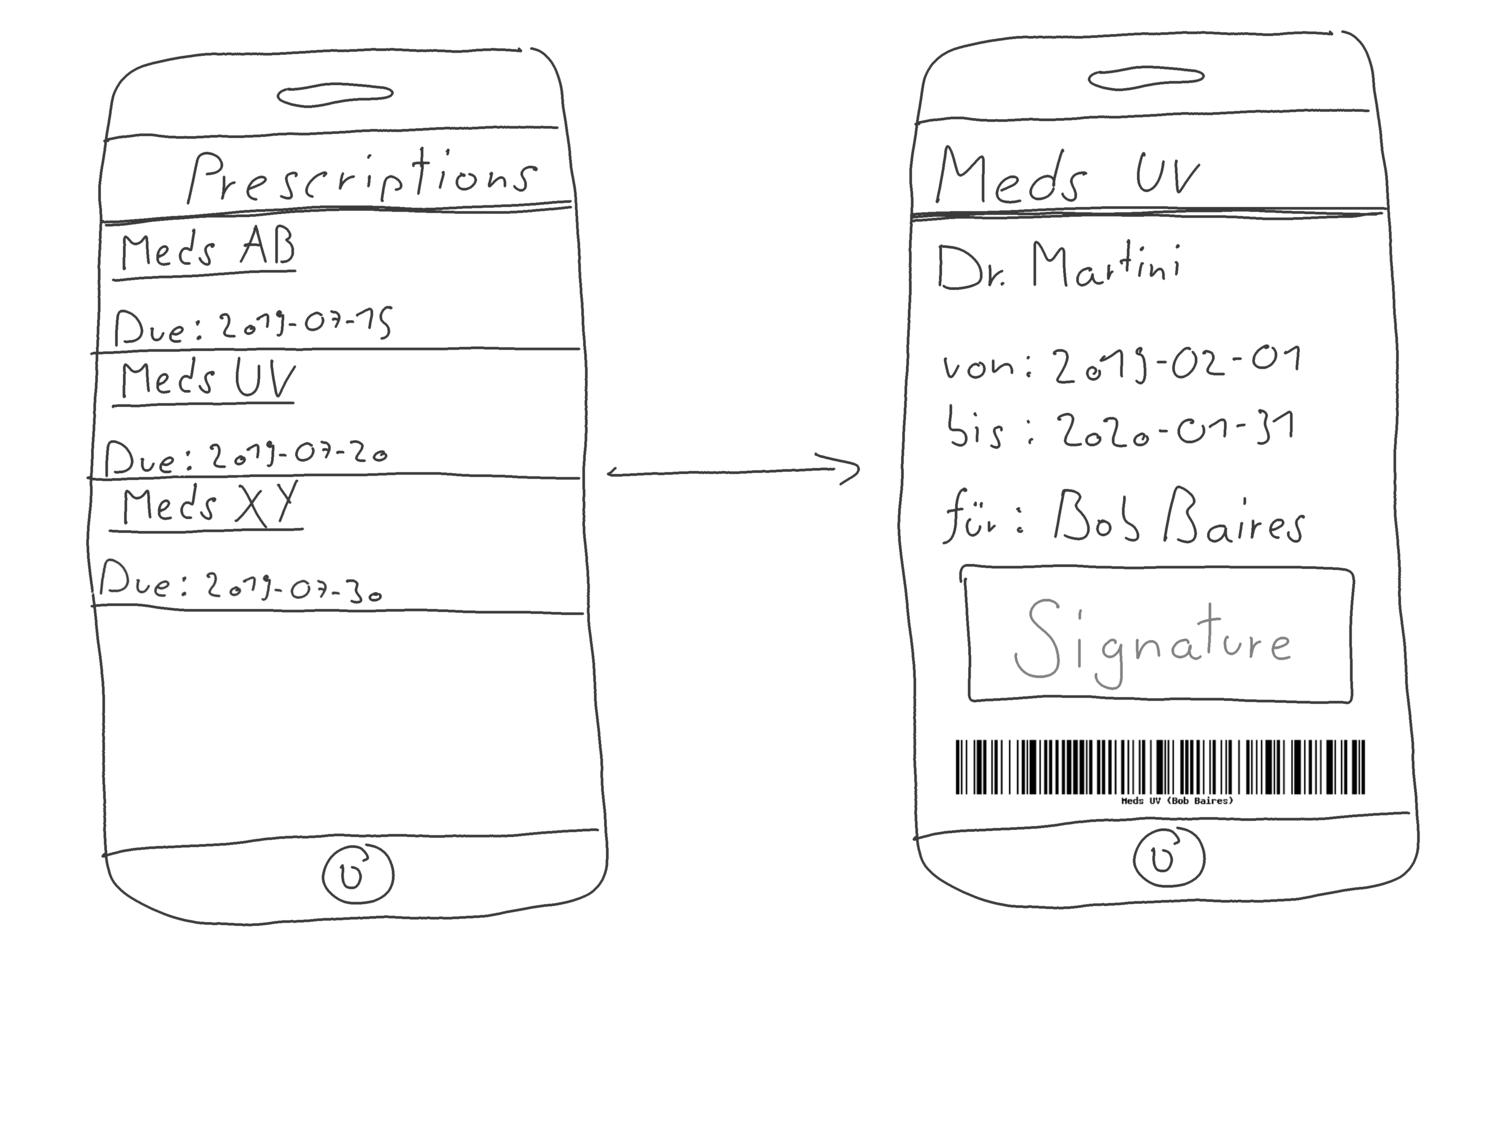 Prescriptions
Meds AB
Due: 2019-07-15
Meds UV
Due: 2019-07-20
Meds XY
Due: 2019-07-30
Meds UV
Dr. Martini
von: 2019-02-01
bis: 2020-01-31
für: Bob Baires
Signature
Meds UV (Bob Baires)